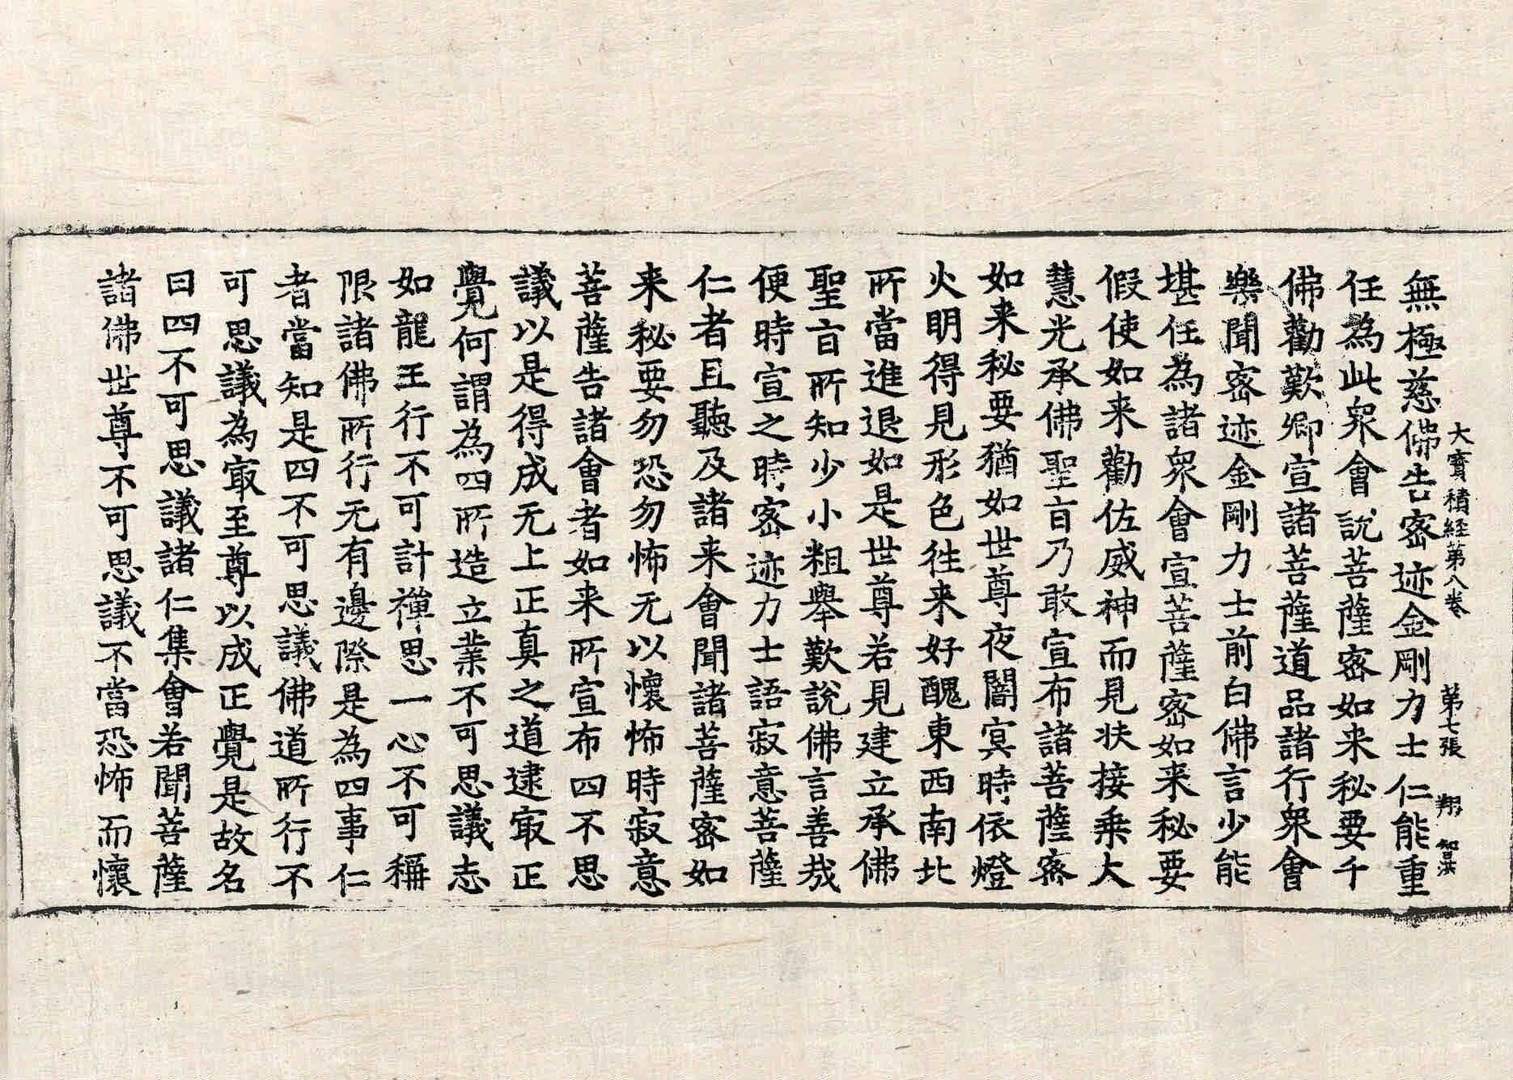 大寶積経第八卷 第七張 翔
無極慈佛告密迹金剛力士仁能重
任為此衆會說菩薩密如来秘要千
佛勸歎卿宣諸菩薩道品諸行衆會
樂聞密迹金剛力士前白佛言少能
堪任為諸衆會宣菩薩密如来秘要
假使如来勸佐威神而見扶接乗大
慧光承佛聖旨乃敢宣布諸菩薩密
如来秘要猶如世尊夜闇冥時依燈
火明得見形色往来好醜東西南北
所當進退如是世尊若見建立承佛
聖旨所知少小粗舉歎說佛言善哉
便時宣之時密迹力士語寂意菩薩
仁者且聽及諸来會聞諸菩薩密如
来秘要勿恐勿怖无以懷怖時寂意
菩薩告諸會者如来所宣布四不思
議以是得成无上正真之道逮冣正
覺何謂為四所造立業不可思議志
如龍王行不可計禪思一心不可稱
限諸佛所行无有邊際是為四事仁
者當知是四不可思議佛道所行不
可思議為冣至尊以成正覺是故名
曰四不可思議諸仁集會若聞菩薩
諸佛世尊不可思議不當恐怖而懷